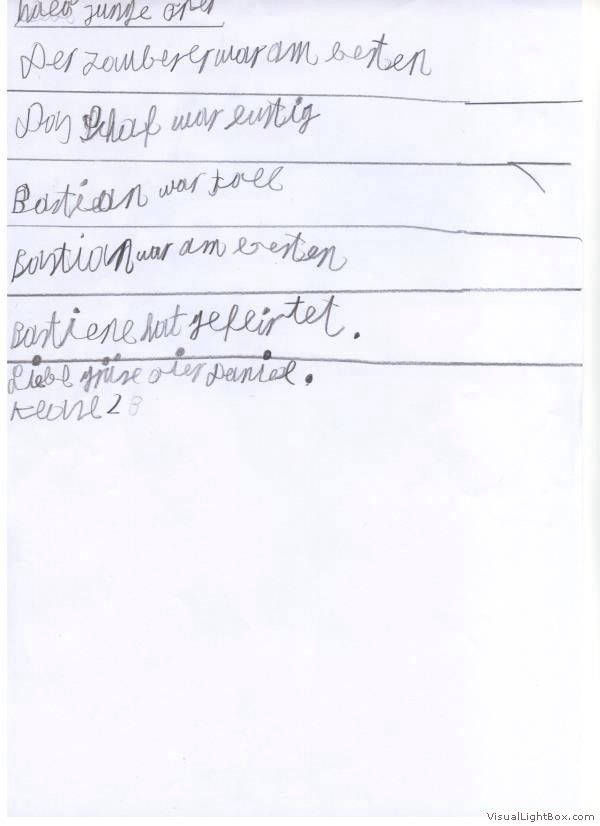 hallo junge oper
Der zauberer war am besten
Das Schaf war lustig
Bastian war toll
Bastian war am besten
Bastiene hat gefeirtet.
Liebe grüse Daniel.
2
VisualLightBox.com